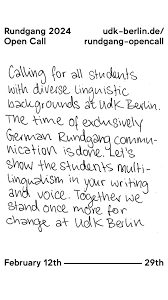 Rundgang 2024
Open Call
udk-berlin.de/
rundgang-opencall
Calling for all students
with diverse linguistic
backgrounds at UdK Berlin.
The time of exclusively
German Rundgang commu-
nication is done. Let's
show the students multi-
lingualism in your writing
and voice. Together we
stand once more for
change at UdK Berlin
February 12th
29th